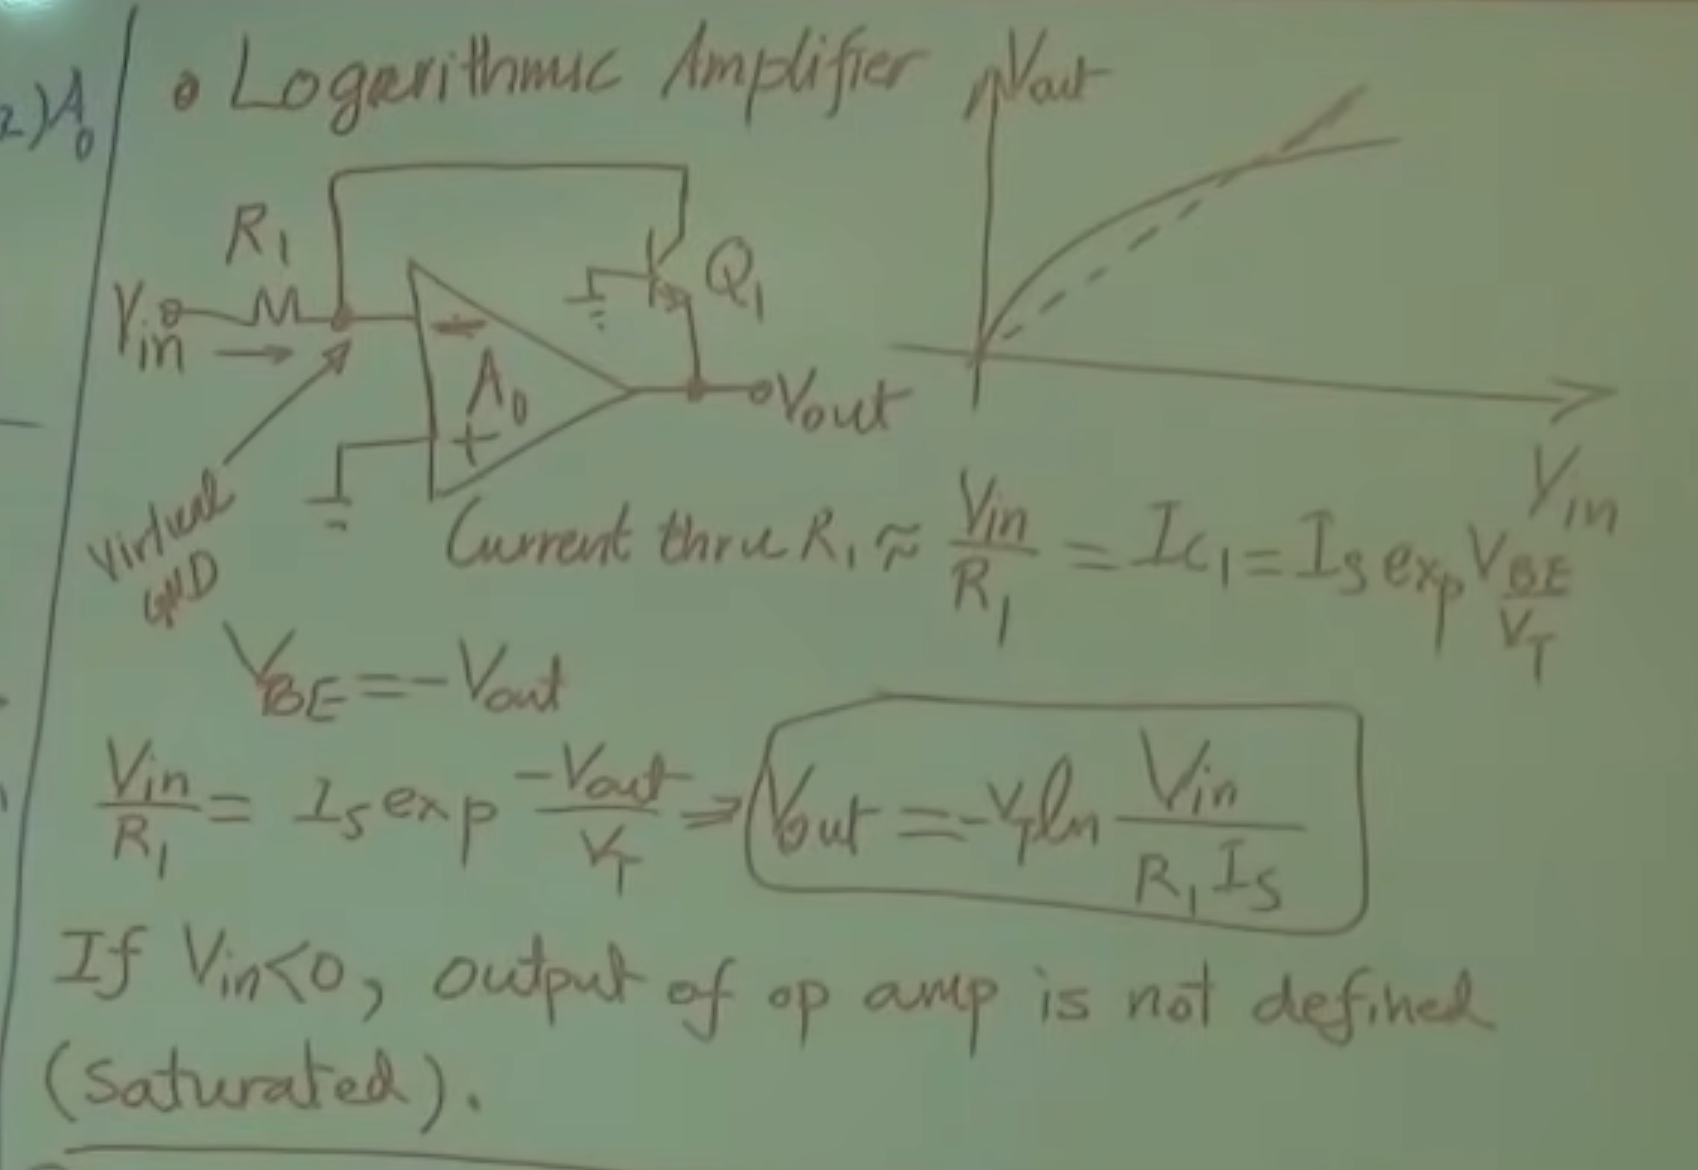 2)A0
• Logarithmic Amplifier
Vout
R1
Q1
Vin
−
A0
+
Vout
Vin
Virtual
GND
Current thru R1 ≈ Vin/R1 = IC1 = IS exp VBE/VT
VBE = −Vout
Vin/R1 = IS exp −Vout/VT ⇒ Vout = −VT ln Vin/R1 IS
If Vin<0, output of op amp is not defined
(saturated).